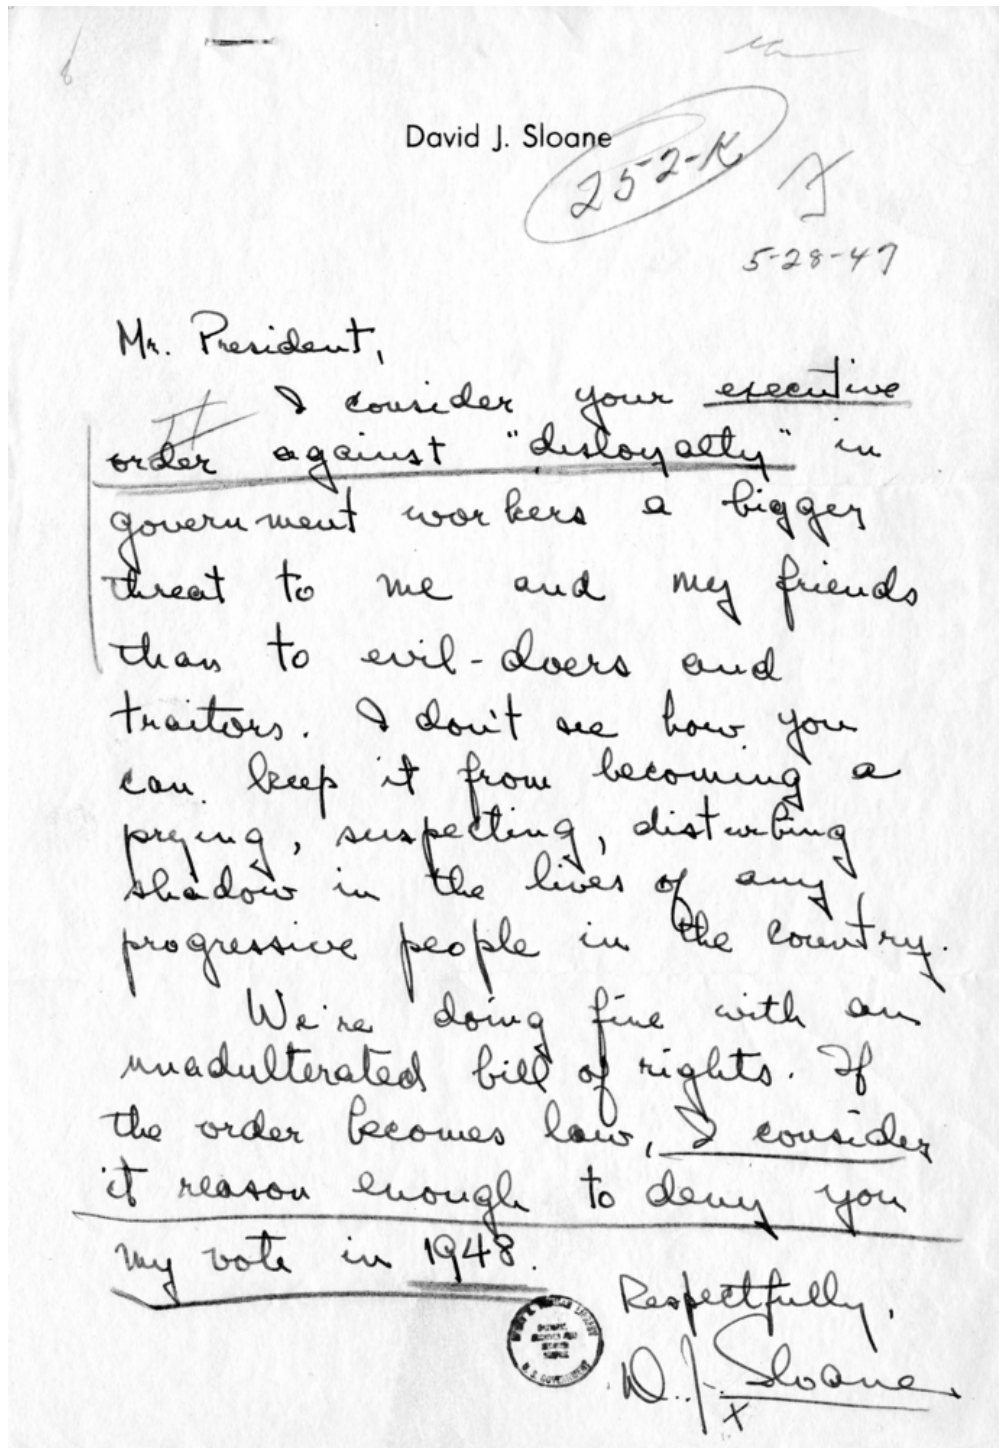 David J. Sloane
252-K
5-28-47
Mr. President,
I consider your executive
order against "disloyalty" in
government workers a bigger
threat to me and my friends
than to evil-doers and
traitors. I don't see how you
can keep it from becoming a
prying, suspecting, disturbing
shadow in the lives of any
progressive people in the country.
We're doing fine with an
unadulterated bill of rights. If
the order becomes law, I consider
it reason enough to deny you
my vote in 1948.
Respectfully,
D. J. Sloane
x